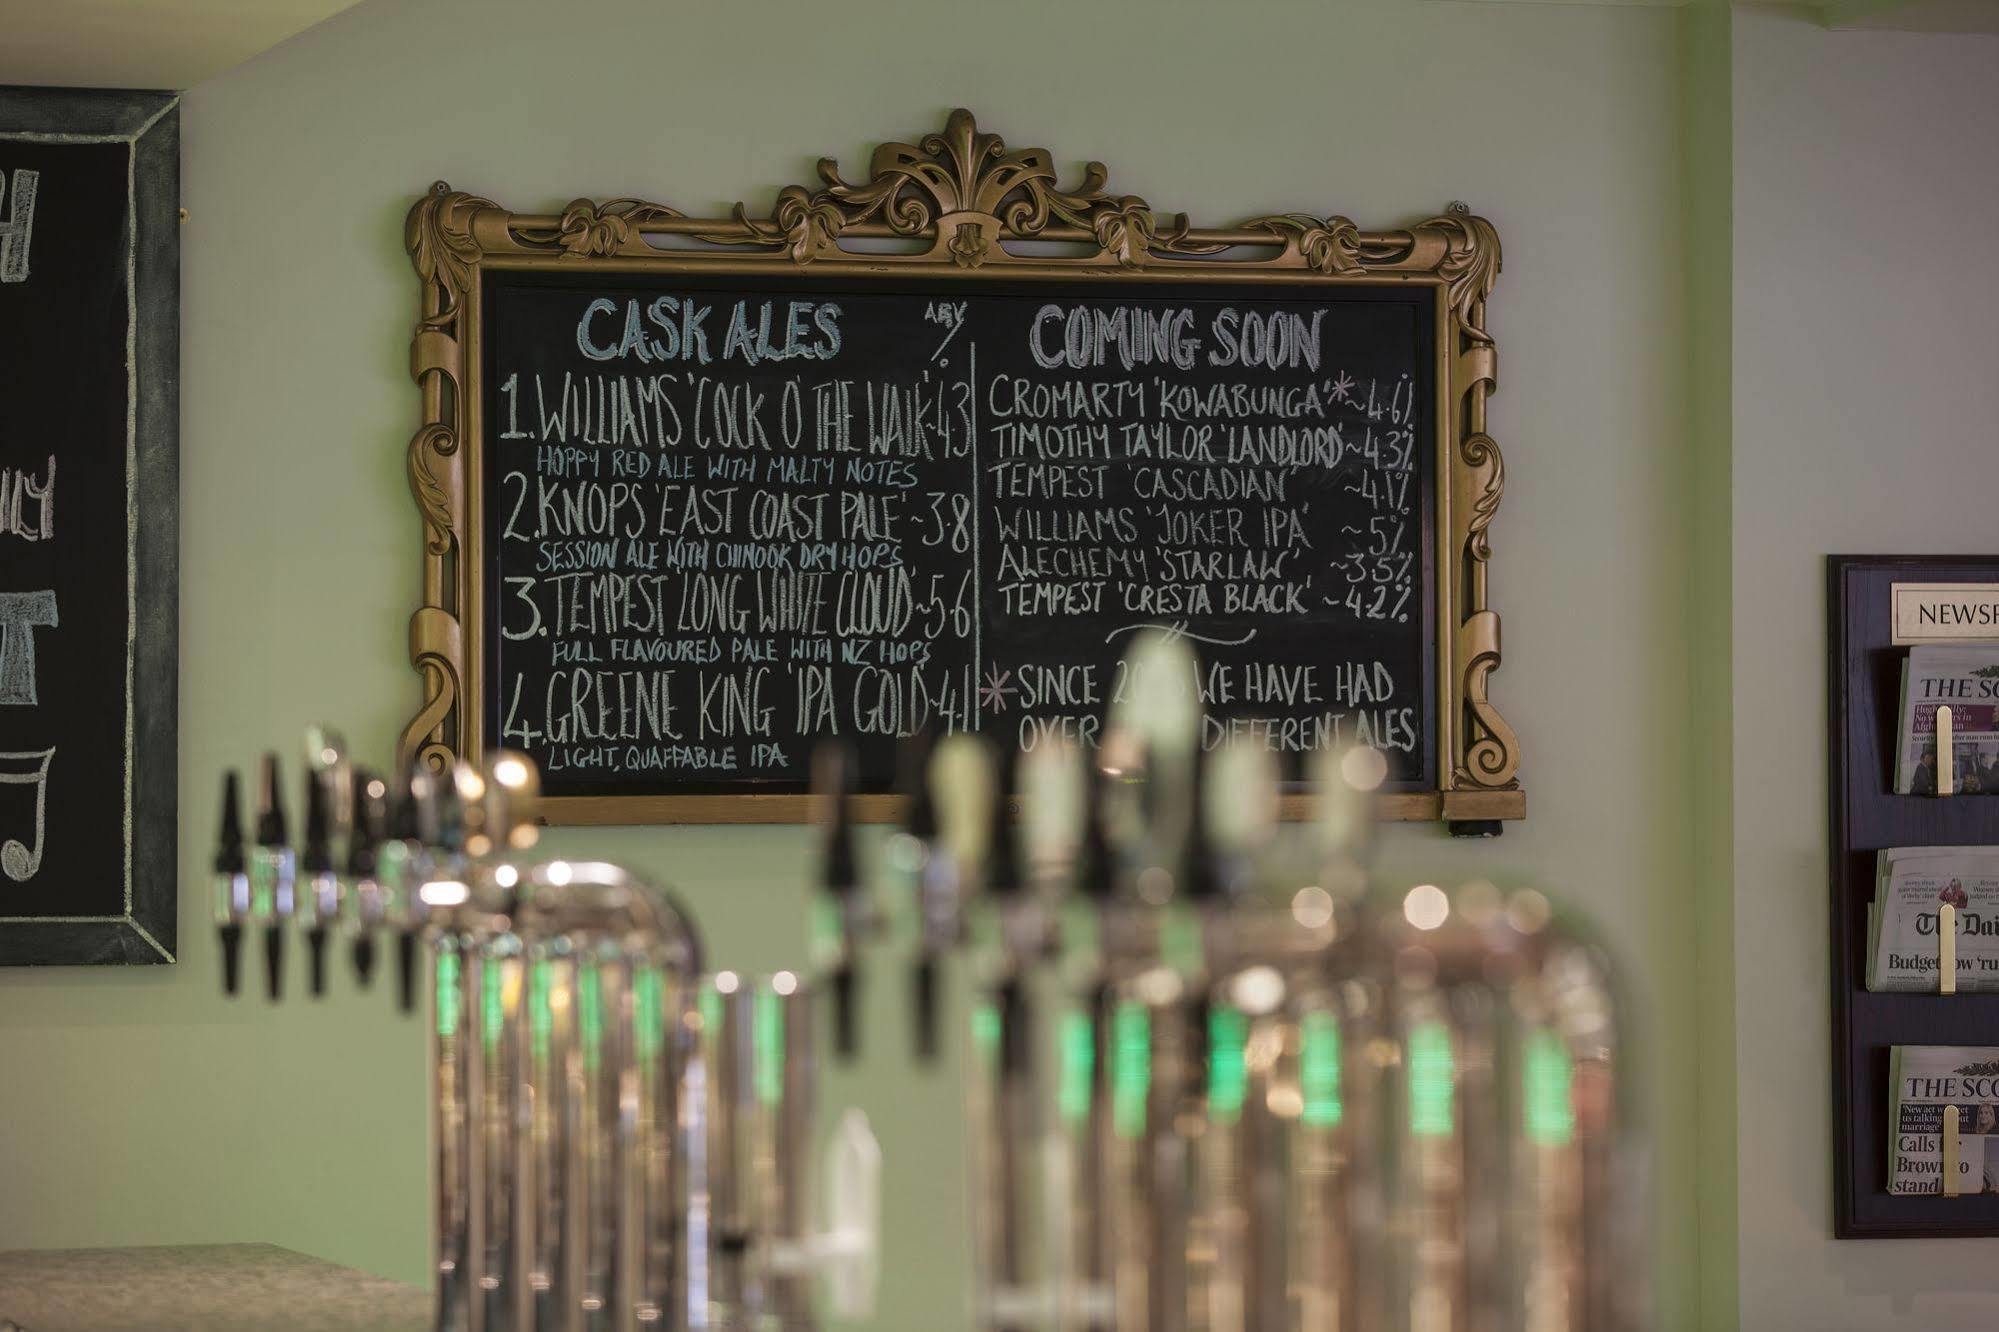 CASK ALES ABV %
1. WILLIAMS 'COCK O' THE WALK' ~ 4.3
HOPPY RED ALE WITH MALTY NOTES
2. KNOPS 'EAST COAST PALE' ~ 3.8
SESSION ALE WITH CHINOOK DRY HOPS
3. TEMPEST 'LONG WHITE CLOUD' ~ 5.6
FULL FLAVOURED PALE WITH NZ HOPS
4. GREENE KING 'IPA GOLD' ~ 4.1
LIGHT, QUAFFABLE IPA
COMING SOON
CROMARTY 'KOWABUNGA' * ~ 4.6%
TIMOTHY TAYLOR 'LANDLORD' ~ 4.3%
TEMPEST 'CASCADIAN' ~ 4.1%
WILLIAMS 'JOKER IPA' ~ 5%
ALECHEMY 'STARLAW' ~ 3.5%
TEMPEST 'CRESTA BLACK' ~ 4.2%
* SINCE WE HAVE HAD
OVER DIFFERENT ALES
H
T
NEWSP
THE SCO
Afghanistan
The Dai
Budget row 'ru
THE SCO
'New act
us talking
marriage'
Calls for
Brown to
stand